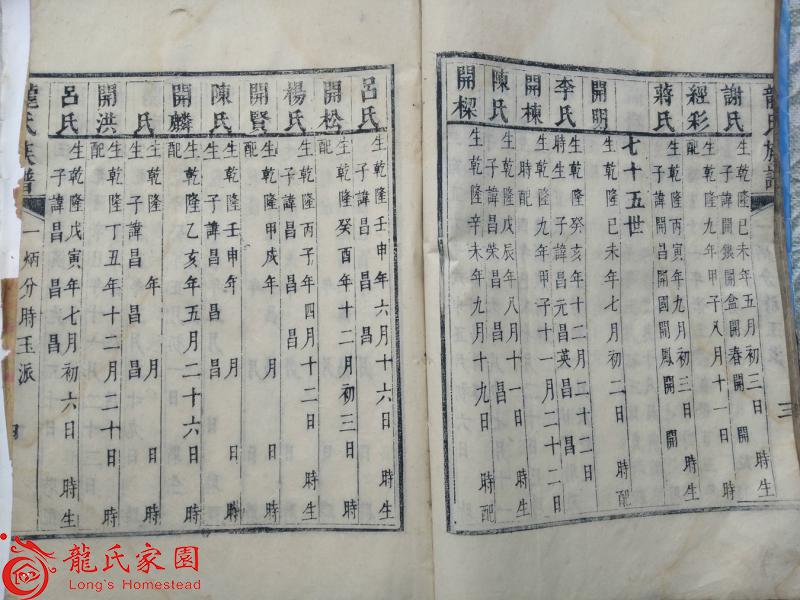 龍氏族譜
三
謝氏 生乾隆己未年五月初三日 時生
子諱開銀開盒開春開
經彩 生乾隆九年甲子八月十一日 時
配
蔣氏 生乾隆丙寅年九月初三日 時生
子諱開昌開國開鳳開
七十五世
開明 生乾隆己未年七月初二日 時配
李氏 生乾隆癸亥年十二月二十二日
時生 子諱昌元昌英昌 昌
開棟 生乾隆九年甲子十一月二十二日
時配
陳氏 生乾隆戊辰年八月十一日 時生
子諱昌榮昌 昌
開樑 生乾隆辛未年九月十九日 時配
呂氏 生乾隆壬申年六月十六日 時生
子諱昌 昌
開松 生乾隆癸酉年十二月初三日 時
配
楊氏 生乾隆丙子年四月十二日 時生
子諱昌 昌
開賢 生乾隆甲戌年 月 日 時
配
陳氏 生乾隆壬申年 月 日 時生
子諱昌 昌
開麟 生乾隆乙亥年五月二十六日 時
配
氏 生乾隆 年 月 日 時生
子諱昌 昌
開洪 生乾隆丁丑年十二月二十日 時
配
呂氏 生乾隆戊寅年七月初六日 時生
子諱昌 昌
龍氏族譜
一炳分時玉派
四
龍氏家園
Long's Homestead